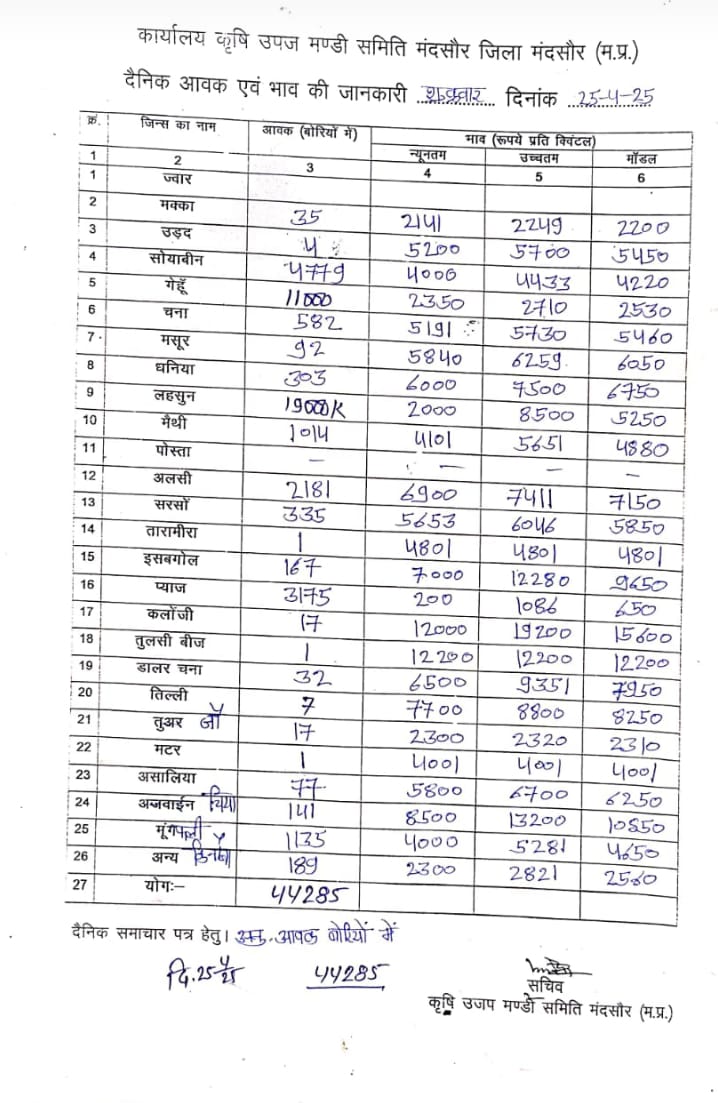 कार्यालय कृषि उपज मण्डी समिति मंदसौर जिला मंदसौर (म.प्र.)
दैनिक आवक एवं भाव की जानकारी शुक्रवार दिनांक 25-4-25
क्र. जिन्स का नाम आवक (बोरियों में) भाव (रूपये प्रति क्विंटल)
न्यूनतम उच्चतम मॉडल
1 2 3 4 5 6
1 ज्वार
2 मक्का 35 2141 2249 2200
3 उड़द 4 5200 5700 5450
4 सोयाबीन 4779 4000 4433 4220
5 गेहूँ 11000 2350 2710 2530
6 चना 582 5191 5730 5460
7 मसूर 92 5840 6259 6050
8 धनिया 303 6000 7500 6750
9 लहसुन 19000K 2000 8500 5250
10 मैथी 1014 4101 5651 4880
11 पोस्ता — — — —
12 अलसी 2181 6900 7411 7150
13 सरसों 335 5653 6046 5850
14 तारामीरा 1 4801 4801 4801
15 इसबगोल 167 7000 12280 9650
16 प्याज 3175 200 1086 650
17 कलोंजी 17 12000 19200 15600
18 तुलसी बीज 1 12200 12200 12200
19 डालर चना 32 6500 9351 7950
20 तिल्ली 7 7700 8800 8250
21 तुअर जौ 17 2300 2320 2310
22 मटर 1 4001 4001 4001
23 असालिया 77 5800 6700 6250
24 अजवाईन चिया 141 8500 13200 10850
25 मूंगफली 1135 4000 5281 4650
26 अन्य 189 2300 2821 2560
27 योगः– 44285
दैनिक समाचार पत्र हेतु। आवक बोरियों में
दि. 25/4/25 44285
सचिव
कृषि उजप मण्डी समिति मंदसौर (म.प्र.)